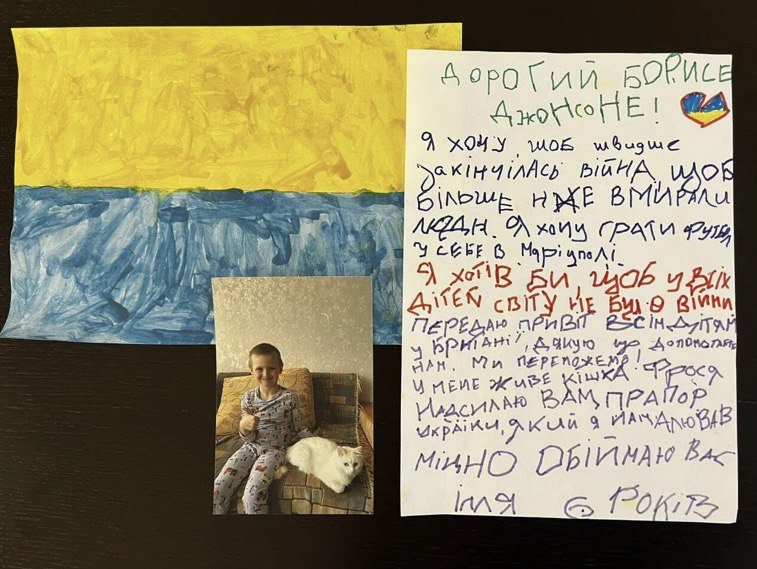 ДОРОГИЙ БОРИСЕ
ДЖОНСОНЕ!
Я ХОЧУ, ЩОБ ШВИДШЕ
ЗАКІНЧІЛАСЬ ВІЙНА, ЩОБ
БІЛЬШЕ НЕ ВМИРАЛИ
ЛЮДИ. Я ХОЧУ ГРАТИ ФУТБОЛ
У СЕБЕ В МАРІУПОЛІ.
Я ХОТІВ БИ, ЩОБ У ВСІХ
ДІТЕЙ СВІТУ НЕ БУЛО ВІЙНИ
ПЕРЕДАЮ ПРИВІТ ВСІМ ДІТЯМ
У БРИТАНІЇ, ДЯКУЮ ЩО ДОПОМАГАЄТЕ
НАМ. МИ ПЕРЕМОЖЕМО!
У МЕНЕ ЖИВЕ КІШКА ФРОСЯ
НАДСИЛАЮ ВАМ ПРАПОР
УКРАЇНИ, ЯКИЙ Я НАМАЛЮВАВ
МІЦНО ОБІЙМАЮ ВАС
ІЛЛЯ 6 РОКІВ